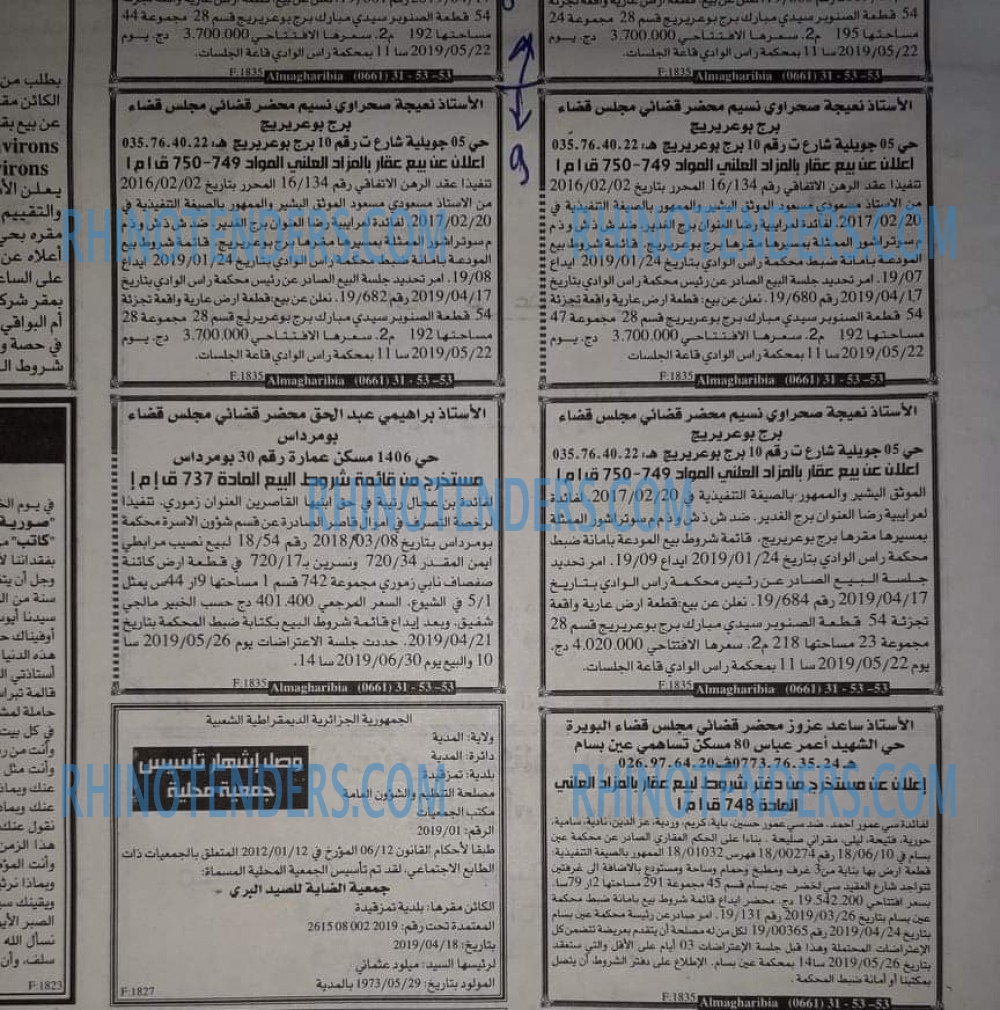 54 قطعة الصنوبر سيدي مبارك برج بوعريريج قسم 28 مجموعة 24
مساحتها 195 م2. سعرها الافتتاحي 3.700.000 دج. يوم
2019/05/22 سا 11 بمحكمة راس الوادي قاعة الجلسات.
F:1835 Almagharibia (0661) 31 - 53 -53
54 قطعة الصنوبر سيدي مبارك برج بوعريريج قسم 28 مجموعة 44
مساحتها 192 م2. سعرها الافتتاحي 3.700.000 دج. يوم
2019/05/22 سا 11 بمحكمة راس الوادي قاعة الجلسات.
F:1835 Almagharibia (0661) 31 - 53 -53
الأستاذ نعيجة صحراوي نسيم محضر قضائي مجلس قضاء
برج بوعريريج
حي 05 جويلية شارع ت رقم 10 برج بوعريريج هـ: 035.76.40.22
اعلان عن بيع عقار بالمزاد العلني المواد 749-750 ق ا م ا
تنفيذا عقد الرهن الاتفاقي رقم 16/134 المحرر بتاريخ 2016/02/02
من الاستاذ مسعودي مسعود الموثق البشير والممهور بالصيغة التنفيذية في
2017/02/20 لفائدة لعرايبية رضا العنوان برج الغدير. ضد ش ذش وذ م
م سوتراشور الممثلة بمسيرها مقرها برج بوعريريج. قائمة شروط بيع
المودعة بأمانة ضبط محكمة راس الوادي بتاريخ 2019/01/24 ايداع
19/07. امر تحديد جلسة البيع الصادر عن رئيس محكمة راس الوادي بتاريخ
2019/04/17 رقم 19/680. نعلن عن بيع: قطعة ارض عارية واقعة تجزئة
54 قطعة الصنوبر سيدي مبارك برج بوعريريج قسم 28 مجموعة 47
مساحتها 192 م2. سعرها الافتتاحي 3.700.000 دج. يوم
2019/05/22 سا 11 بمحكمة راس الوادي قاعة الجلسات
F:1835 Almagharibia (0661) 31 - 53 -53
الأستاذ نعيجة صحراوي نسيم محضر قضائي مجلس قضاء
برج بوعريريج
حي 05 جويلية شارع ت رقم 10 برج بوعريريج هـ: 035.76.40.22
اعلان عن بيع عقار بالمزاد العلني المواد 749-750 ق ا م ا
تنفيذا عقد الرهن الاتفاقي رقم 16/134 المحرر بتاريخ 2016/02/02
من الاستاذ مسعودي مسعود الموثق البشير والممهور بالصيغة التنفيذية في
2017/02/20 لفائدة لعرايبية رضا العنوان برج الغدير. ضد ش ذش وذ م
م سوتراشور الممثلة بمسيرها مقرها برج بوعريريج. قائمة شروط بيع
المودعة بأمانة ضبط محكمة راس الوادي بتاريخ 2019/01/24 ايداع
19/08. امر تحديد جلسة البيع الصادر عن رئيس محكمة راس الوادي بتاريخ
2019/04/17 رقم 19/682. نعلن عن بيع: قطعة ارض عارية واقعة تجزئة
54 قطعة الصنوبر سيدي مبارك برج بوعريريج قسم 28 مجموعة 28
مساحتها 192 م2. سعرها الافتتاحي 3.700.000 دج. يوم
2019/05/22 سا 11 بمحكمة راس الوادي قاعة الجلسات.
F:1835 Almagharibia (0661) 31 - 53 -53
9
الأستاذ نعيجة صحراوي نسيم محضر قضائي مجلس قضاء
برج بوعريريج
حي 05 جويلية شارع ت رقم 10 برج بوعريريج هـ: 035.76.40.22
اعلان عن بيع عقار بالمزاد العلني المواد 749-750 ق ا م ا
الموثق البشير والممهور بالصيغة التنفيذية في 2017/02/20. لفائدة
لعرايبية رضا العنوان برج الغدير. ضد ش ذش وذ م م سوتراشور الممثلة
بمسيرها مقرها برج بوعريريج. قائمة شروط بيع المودعة بامانة ضبط
محكمة راس الوادي بتاريخ 2019/01/24 ايداع 19/09. امر تحديد
جلسة البيع الصادر عن رئيس محكمة راس الوادي بتاريخ
2019/04/17 رقم 19/684. نعلن عن بيع: قطعة ارض عارية واقعة
تجزئة 54 قطعة الصنوبر سيدي مبارك برج بوعريريج قسم 28
مجموعة 23 مساحتها 218 م2. سعرها الافتتاحي 4.020.000 دج.
يوم 2019/05/22 سا 11 بمحكمة راس الوادي قاعة الجلسات.
F:1835 Almagharibia (0661) 31 - 53 -53
الأستاذ براهيمي عبد الحق محضر قضائي مجلس قضاء
بومرداس
حي 1406 مسكن عمارة رقم 30 بومرداس
مستخرج من قائمة شروط البيع المادة 737 ق إ م إ
لفائدة بن عجال رتيبة في حق ابنيها القاصرين العنوان زموري. تنفيذا
لرخصة التصرف في أموال قاصر الصادرة عن قسم شؤون الاسرة محكمة
بومرداس بتاريخ 2018/03/08 رقم 18/54 لبيع نصيب مرابطي
ايمن المقدر 720/34 ونسرين بـ 720/17 في قطعة ارض كائنة
صفصاف نابي زموري مجموعة 742 قسم 1 مساحتها 9ار 44س يمثل
5/1 في الشيوع. السعر المرجعي 401.400 دج حسب الخبير مالجي
شفيق. وبعد إيداع قائمة شروط البيع بكتابة ضبط المحكمة بتاريخ
2019/04/21. حددت جلسة الاعتراضات يوم 2019/05/26 سا
10 والبيع يوم 2019/06/30 سا 14.
F:1835 Almagharibia (0661) 31 - 53 -53
الأستاذ ساعد عزوز محضر قضائي مجلس قضاء البويرة
حي الشهيد أعمر عباس 80 مسكن تساهمي عين بسام
هـ 0773.76.35.24 ف 026.97.64.20
إعلان عن مستخرج من دفتر شروط لبيع عقار بالمزاد العلني
المادة 748 ق ا م ا
لفائدة سي عمور احمد. ضد سي عمور حسين، باية، كريم، وردية، عز الدين، نادية، سامية،
حورية، فتيحة، ليلى، مقراني صليحة . بناءا على الحكم العقاري الصادر عن محكمة عين
بسام في 18/06/10 رقم 18/00274 فهرس 18/01032 الممهور بالصيغة التنفيذية:
قطعة ارض بها بناية من3 غرف ومطبخ وحمام وساحة ومستودع بالاضافة الى غرفتين
تتواجد شارع العقيد سي لخضر عين بسام قسم 45 مجموعة 291 مساحتها 2ار 79سا.
بسعر افتتاحي 19.542.200 دج. محضر ايداع قائمة شروط بيع بامانة ضبط محكمة
عين بسام بتاريخ 2019/03/26 رقم 19/131. امر صادر عن رئيسة محكمة عين بسام
بتاريخ 2019/04/24 رقم 19/00365 لكل من له مصلحة أن يتقدم بعريضة تتضمن كل
الإعتراضات المحتملة وهذا قبل جلسة الإعتراضات 03 أيام على الأقل والتي ستنعقد
بتاريخ 2019/05/26 سا14 بمحكمة عين بسام. الإطلاع على دفتر الشروط أن يتصل
بمكتبنا أو أمانة ضبط المحكمة .
F:1835 Almagharibia (0661) 31 - 53 -53
الجمهورية الجزائرية الديمقراطية الشعبية
ولاية: المدية
دائرة: المدية
بلدية: تمزقيدة
مصلحة التنظيم والشؤون العامة
مكتب الجمعيات
الرقم: 2019/01
وصل إشهار تأسيس
جمعية محلية
طبقا لأحكام القانون 06/12 المؤرخ في 2012/01/12 المتعلق بالجمعيات ذات
الطابع الاجتماعي، لقد تم تأسيس الجمعية المحلية المسماة:
جمعية الضاية للصيد البري
الكائن مقرها: بلدية تمزقيدة
المعتمدة تحت رقم: 2019 002 08 2615
بتاريخ: 2019/04/18
لرئيسها السيد: ميلود عثماني
المولود بتاريخ: 1973/05/29 بالمدية
F:1827
بطلب من
الكائن مقـ
عن بيع بقـ
nvirons
virons
يعلن الأ
والتقييم
مقره بحي
أعلاه عن
على الساعـ
بمقر شركـ
أم البواقي
في حصة و
شروط الـ
في يوم الخـ
"صورية
"كاتب" مـ
بفقداننا لا
وجل أن يتغـ
سنة من الـ
سيدنا أيوب
أوفيناك حـ
هذه الدنيا
أستاذتي ال
قالمة تبراس
حاملة لمشـ
في كل بيت
وأنت من رـ
وأنت مثل
عنك وبماذا
عنك وبماذا
نقول عنك
هذا الزمن
وأنت المؤـ
وبماذا نرثيـ
ويقينك سـ
الصبر الأيو
نسأل الله
سلف، وأن
F:1823
RHINOTENDERS.COM
RHINOTENDERS.COM
RHINOTENDERS.COM
RHINOTENDERS.COM
RHINOTENDERS.COM